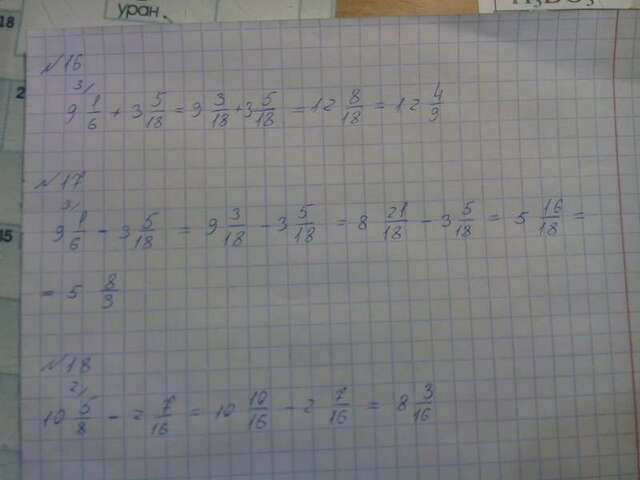 уран.
H₃BO₃
18
2
№16
9 3/ 1/6 + 3 5/18 = 9 3/18 + 3 5/18 = 12 8/18 = 12 4/9
№17
15
9 3/ 1/6 - 3 5/18 = 9 3/18 - 3 5/18 = 8 21/18 - 3 5/18 = 5 16/18 =
= 5 8/9
№18
10 2/ 5/8 - 2 7/16 = 10 10/16 - 2 7/16 = 8 3/16